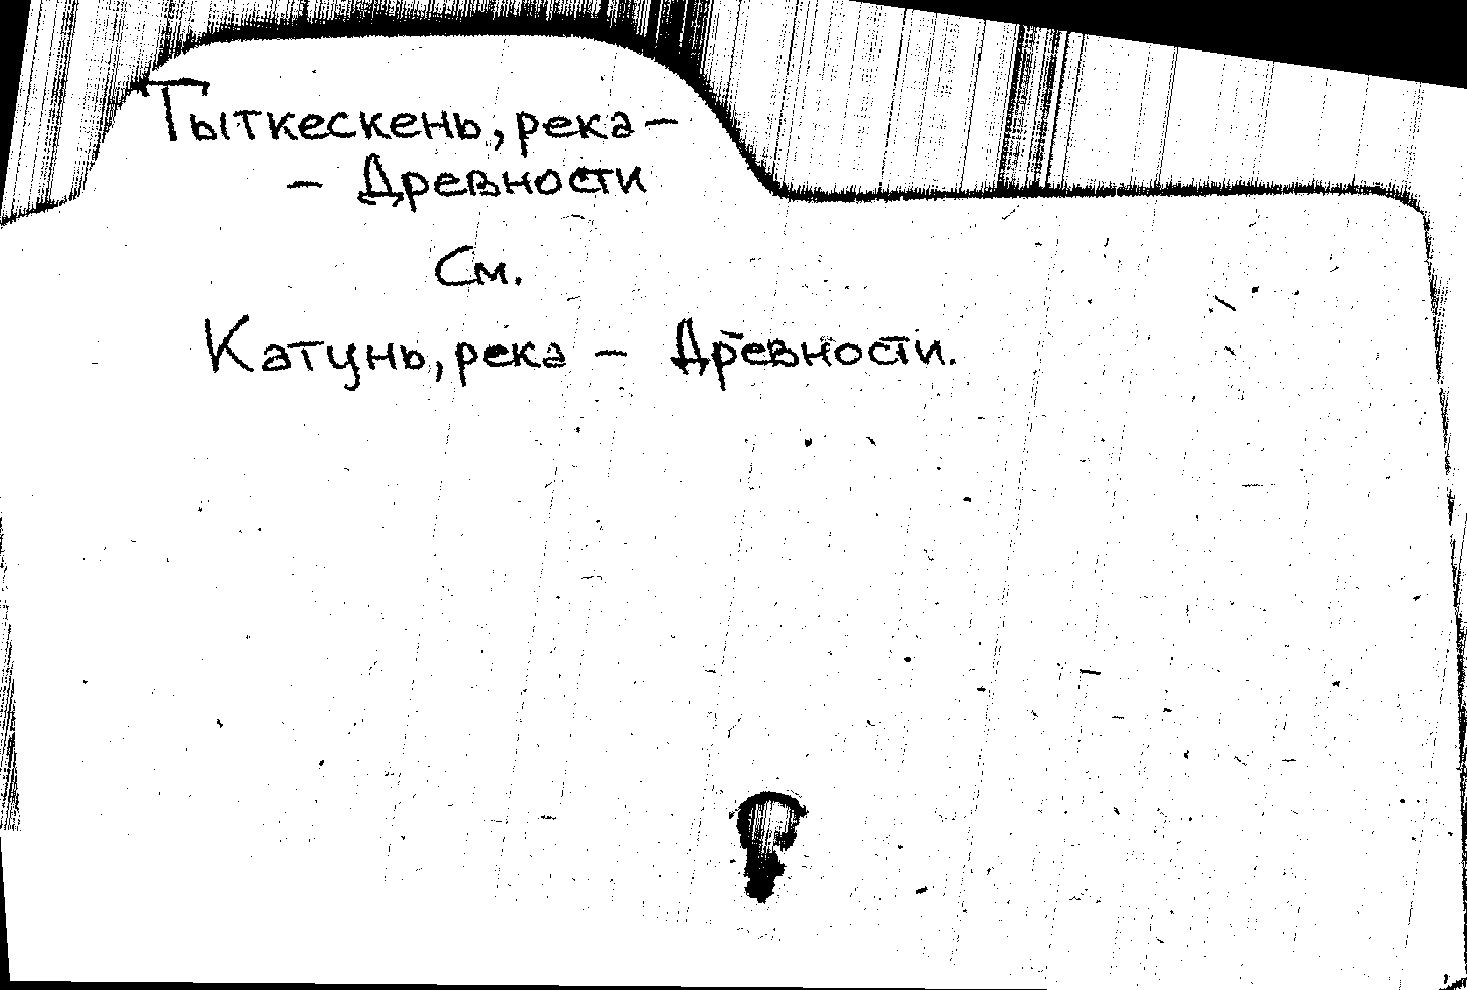 Тыткескень, река —
— Древности
См.
Катунь, река — Древности.